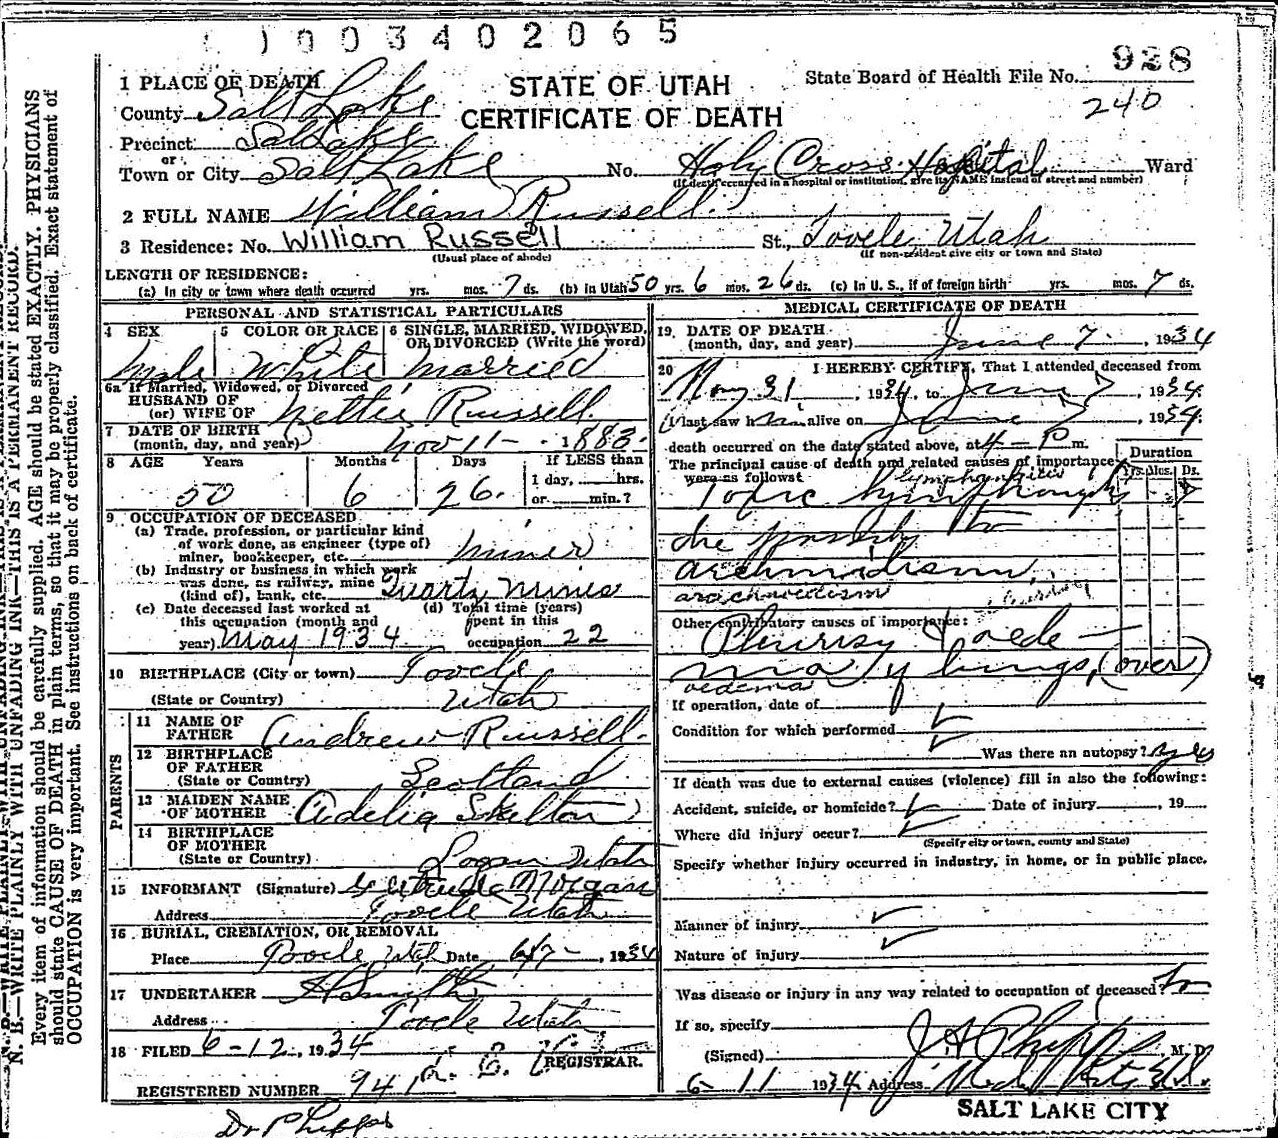 1003402065
928
STATE OF UTAH
CERTIFICATE OF DEATH
State Board of Health File No.
240
1 PLACE OF DEATH
County Salt Lake
Precinct Salt Lake
or
Town or City Salt Lake No. Holy Cross Hospital Ward
(If death occurred in a hospital or institution, give its NAME instead of street and number)
2 FULL NAME William Russell
3 Residence: No. William Russell St., Tooele, Utah
(Usual place of abode) (If non-resident give city or town and State)
LENGTH OF RESIDENCE:
(a) In city or town where death occurred yrs. mos. 7 ds. (b) In Utah 50 yrs. 6 mos. 26 ds. (c) In U. S., if of foreign birth yrs. mos. 7 ds.
PERSONAL AND STATISTICAL PARTICULARS
4 SEX
Male
5 COLOR OR RACE
White
6 SINGLE, MARRIED, WIDOWED, OR DIVORCED (Write the word)
Married
6a If Married, Widowed, or Divorced
HUSBAND OF
(or) WIFE OF Nettie Russell
7 DATE OF BIRTH
(month, day, and year) Nov 11 - 1883
8 AGE Years Months Days If LESS than
1 day, hrs.
50 6 26 or min.?
9 OCCUPATION OF DECEASED
(a) Trade, profession, or particular kind
of work done, as engineer (type of)
miner, bookkeeper, etc. Miner
(b) Industry or business in which work
was done, as railway, mine
(kind of), bank, etc. Quartz Mines
(c) Date deceased last worked at
this occupation (month and
year) May 1934
(d) Total time (years)
spent in this
occupation 22
10 BIRTHPLACE (City or town) Tooele
(State or Country) Utah
PARENTS
11 NAME OF
FATHER Andrew Russell
12 BIRTHPLACE
OF FATHER
(State or Country) Scotland
13 MAIDEN NAME
OF MOTHER Adelia Skelton
14 BIRTHPLACE
OF MOTHER
(State or Country) Logan Utah
15 INFORMANT (Signature) Gertrude Morgan
Address Tooele Utah
16 BURIAL, CREMATION, OR REMOVAL
Place Tooele, Utah Date 1934
17 UNDERTAKER
Address Tooele Utah
18 FILED 6-12, 1934
REGISTRAR.
REGISTERED NUMBER 941
Dr Phipps
MEDICAL CERTIFICATE OF DEATH
19 DATE OF DEATH
(month, day, and year) June 7, 1934
20 I HEREBY CERTIFY, That I attended deceased from
May 31, 1934, to June 7 1934
I last saw him alive on June 7 1934
death occurred on the date stated above, at 4 - P m.
The principal cause of death and related causes of importance
were as follows:
Duration
Yrs. Mos. Ds.
Toxic
due possibly to
arachnidism
Other contributory causes of importance:
Pleurisy & oede-
mia of lungs, (over)
oedema
If operation, date of
Condition for which performed
Was there an autopsy? yes
If death was due to external causes (violence) fill in also the following:
Accident, suicide, or homicide? Date of injury , 19
Where did injury occur?
(Specify city or town, county and State)
Specify whether injury occurred in industry, in home, or in public place.
Manner of injury
Nature of injury
Was disease or injury in any way related to occupation of deceased? No
If so, specify
(Signed) J A Phipps, M. D.
6-11 1934 Address
SALT LAKE CITY
N. B.—WRITE PLAINLY WITH UNFADING INK—THIS IS A PERMANENT RECORD.
Every item of information should be carefully supplied. AGE should be stated EXACTLY. PHYSICIANS
should state CAUSE OF DEATH in plain terms, so that it may be properly classified. Exact statement of
OCCUPATION is very important. See instructions on back of certificate.